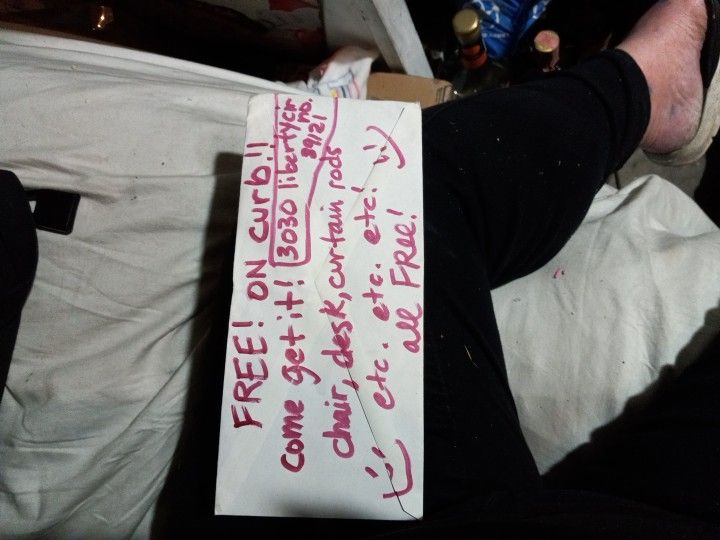 FREE! ON CURB!!
come get it! 3030 liberty cir no. 89121
chair, desk, curtain rods
etc. etc. etc!
all FREE!